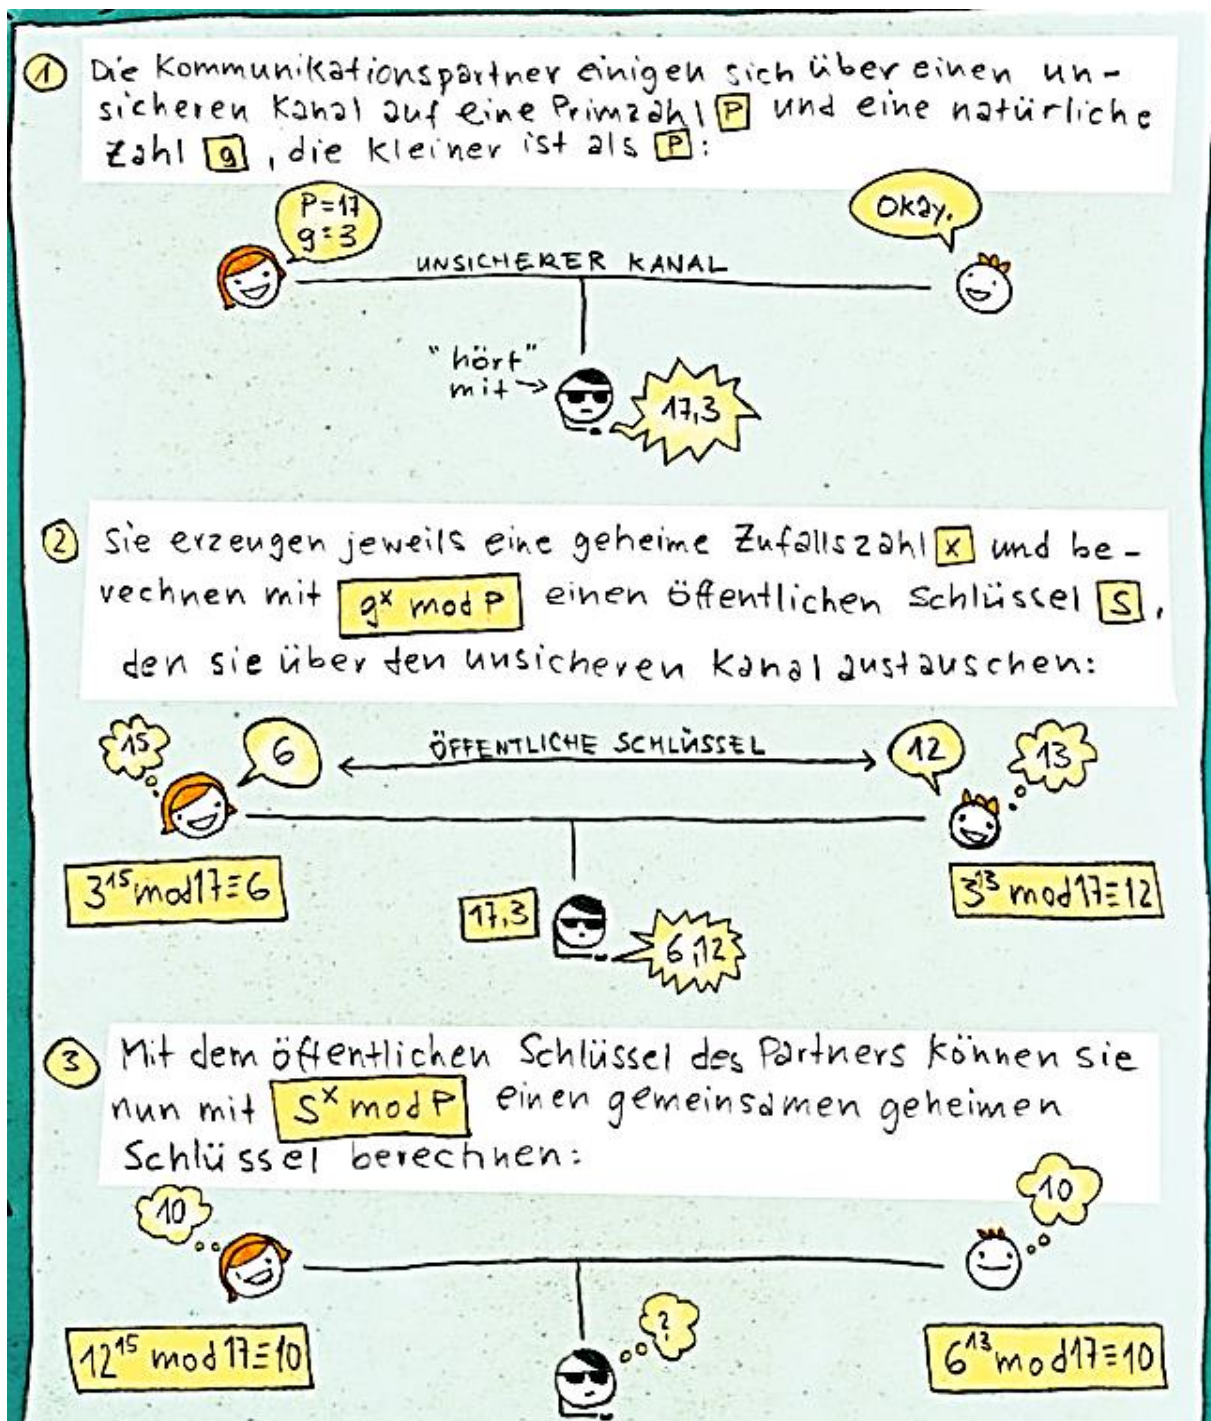 1 Die Kommunikationspartner einigen sich über einen un-
sicheren Kanal auf eine Primzahl P und eine natürliche
Zahl g, die kleiner ist als P:
P=17
g=3
Okay.
UNSICHERER KANAL
"hört"
mit →
17,3
2 Sie erzeugen jeweils eine geheime Zufallszahl x und be-
rechnen mit g^x mod P einen öffentlichen Schlüssel S,
den sie über den unsicheren Kanal austauschen:
15
6
ÖFFENTLICHE SCHLÜSSEL
12
13
3^15 mod 17≡6
3^13 mod 17≡12
17,3
6,12
3 Mit dem öffentlichen Schlüssel des Partners können sie
nun mit S^x mod P einen gemeinsamen geheimen
Schlüssel berechnen:
10
10
?
12^15 mod 17≡10
6^13 mod 17≡10